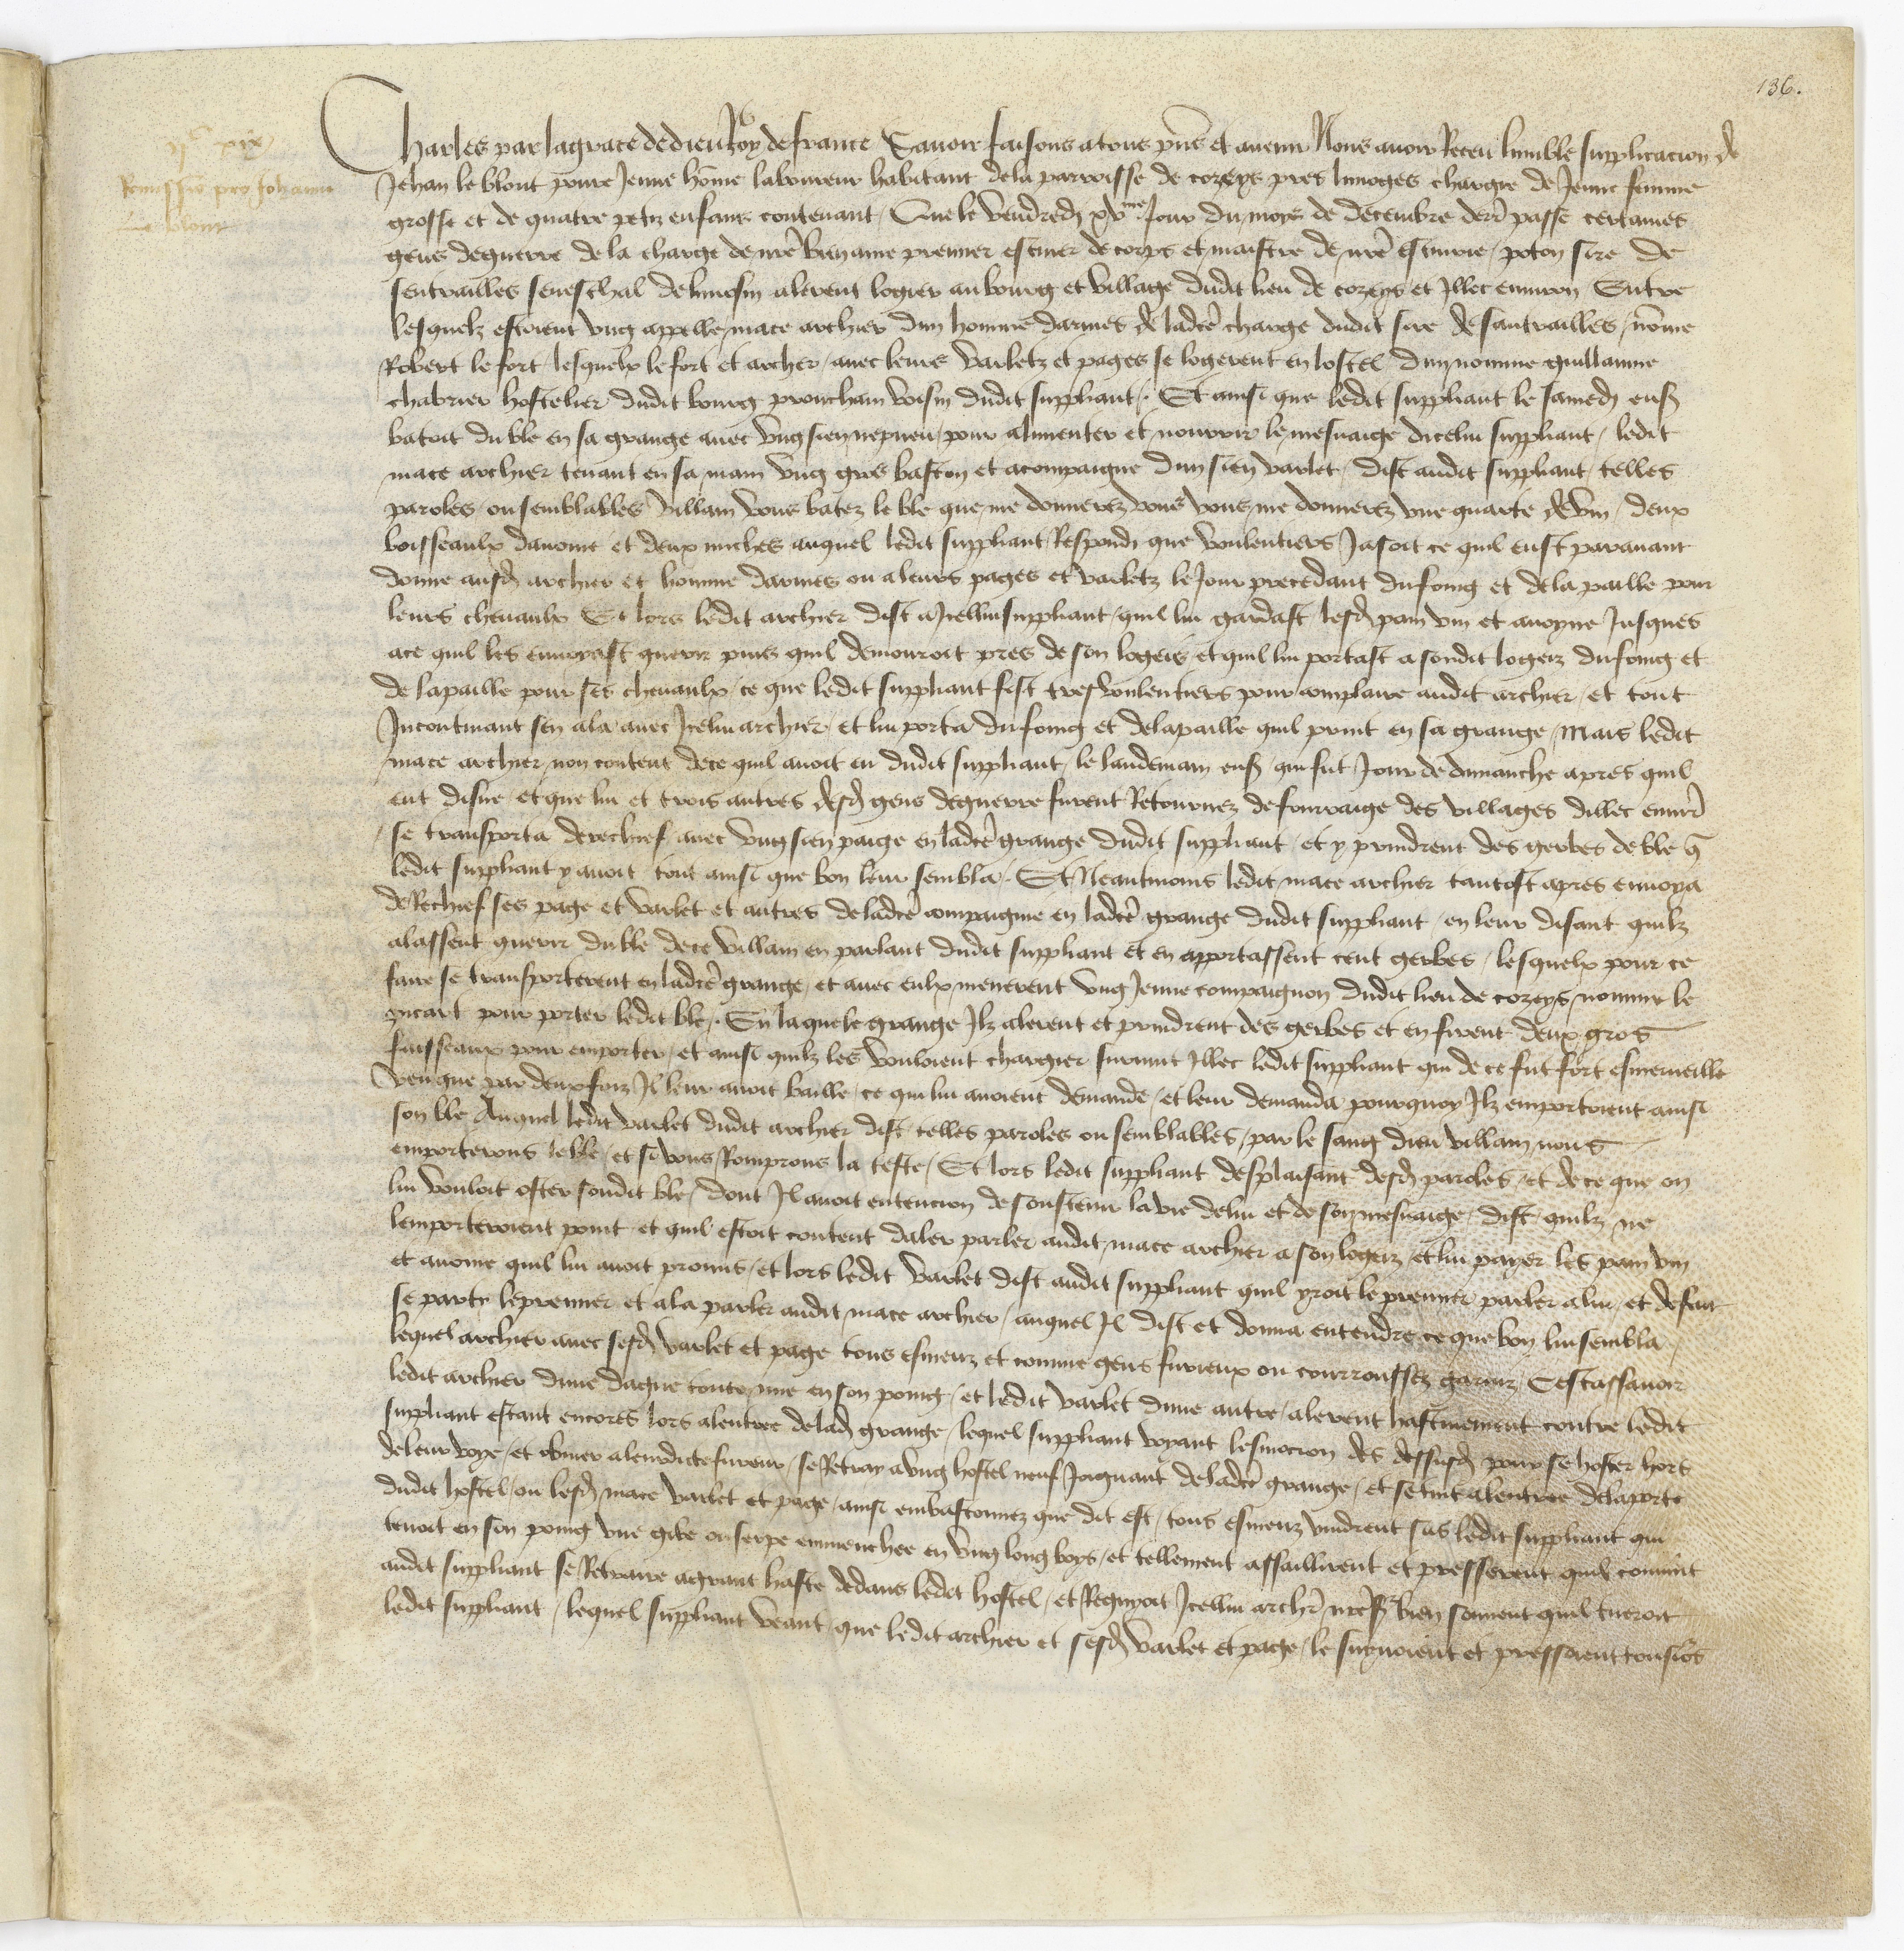 136.
IIc XIX
Remissio pro Johanne
Le blont
Charles par la grace de dieu Roy de france Sauoir faisons a tous pn̄s et auenir Nous auoir Receu lumble supplicacion de
Jehan le blont poure Jeune hōme laboureur habitant de la parroisse de cozeys pres limoges chargie de Jeune femme
grosse et de quatre petiz enfans contenant / Que le vendredj xvme Jour du moys de decembre derr̄ passe certaines
gens de guerre de la charge de nr̄e bien ame premier escuier de corps et maistre de nr̄e escuirie / poton sire de
sentrailles seneschal de limosin alerent logier au bourg et village dudit lieu de cozeys et Illec enuiron Entre
lesquelz estoient vng appelle mace archier dun homme darmes de ladcē charge dudit sire de santrailles / nōme
Robert le fort / lesquelx le fort et archer / auec leurs varletz et pages se logerent en lostel dun nomme guillaume
chabrier hostelier dudit bourg prouchain voisin dudit suppliant /. Et ainsi que ledit suppliant le samedj ens̄
batoit du ble en sa grange auec vng sien nepueu / pour alimenter et nourrir le mesnaige dicelui suppliant / ledit
mace archier tenant en sa main vng gros baston et acompaigne dun sien varlet / dist audit suppliant / telles
paroles / ou semblables villain vous batez le ble que me donnerez vous vous me donnerez vne quarte de vin / deux
boisseaulx dauoine et deux miches auquel ledit suppliant Respondj que voulentiers Jasoit ce quil eust parauant
donne ausd̄ archier et homme darmes ou a leurs pages et varletz le Jour precedant du foing et de la paille pour
leurs cheuaulx Et lors ledit archier dist a Icellui suppliant / quil lui gardast lesd̄ pain vin et auoyne Jusques
ace quil les enuoyast querir puis quil demouroit pres de son logeis / et quil lui portast a sondit logeiz du foing et
de la paille pour ses cheuaulx / ce que ledit suppliant fist tres voulentiers pour complaire audit archier / et tout
Incontinant sen ala auec Icelui archier / et lui porta du foing et de la paille quil print en sa grange / Mais ledit
mace archier non content de ce quil auoit eu dudit suppliant / le landemain ens̄ qui fut Jour de dimanche apres quil
eut disne / et que lui et trois autres desd̄ gens de guerre furent Retournez de fourraige des villages dillec enuirō
se transporta derechief auec vng sien paige en ladcē grange dudit suppliant / et y prindrent des gerbes de ble q̄
ledit suppliant y auoit tout ainsi que bon leur sembla /. Et Neantmoins ledit mace archier tantost apres enuoya
de Rechief ses page et varlet et autres de ladcē compaignie en ladcē grange dudit suppliant / en leur disant quilz
alassent querir du ble de ce villain en parlant dudit suppliant et en apportassent cent gerbes / lesquelx pour ce
faire se transporterent en ladcē grange / et auec eulx menerent vng Jeune compaignon dudit lieu de cozeys nomme le
picart pour porter ledit ble /. En laquele grange Ilz alerent et prindrent des gerbes et en firent deux gros
faisseaux pour emporter / et ainsi quilz les vouloient chargier suruint Illec ledit suppliant qui de ce fut fort esmerueille
veu que par deux foiz Il leur auoit baille / ce qui lui auoient demande / et leur demanda pourquoy Ilz emportoient ainsi
son ble Auquel ledit varlet dudit archier dist telles paroles ou semblables / par le sang dieu villain nous
emporterons le ble / et si vous Romprons la teste / Et lors ledit suppliant desplaisant desd̄ paroles / et de ce que on
lui vouloit oster sondit ble / dont Il auoit entencion de soustenir la vie de lui et de son mesnaige / dist quilz ne
lemporteroient point et quil estoit content daler parler audit mace archier a son logeiz / et lui payer les pain vin
et auoine quil lui auoit promis / et lors ledit varlet dist audit suppliant quil yroit le premier parler a lui / et de fait
se party le premier et ala parler audit mace archier / auquel Il dist et donna entendre ce que bon lui sembla /
lequel archier auec sesd̄ varlet et page tous esmeuz et comme gens furieux ou courroussez garniz / Cestassauoir
ledit archier dune dague toute nue en son poing / et ledit varlet dune autre / alerent hastiuement contre ledit
suppliant estant encores lors a lentree de lad̄ grange / lequel suppliant voyant lesmocion des dessusd̄ pour se hoster hors
de leur voye / et obuier a leurdicte fureur / se Retray a vng hostel neuf Joignant de ladcē grange / et se tint a lentree de la porte
dudit hostel / ou lesd̄ mace varlet et page / ainsi embastonnez que dit est / tous esmeuz vindrent sus ledit suppliant qui
tenoit en son poing vne gibe ou serpe emmenchee en vng long boys / et tellement assaillirent et presserent quil conuint
audit suppliant se Retraire a grant haste dedans ledit hostel / et Regnyoit Icellui archr̄ nr̄e sr̄ bien souuent quil tueroit
ledit suppliant / lequel suppliant veant que ledit archier et sesd̄ varlet et page / le suyuoient et pressoient tousiōs